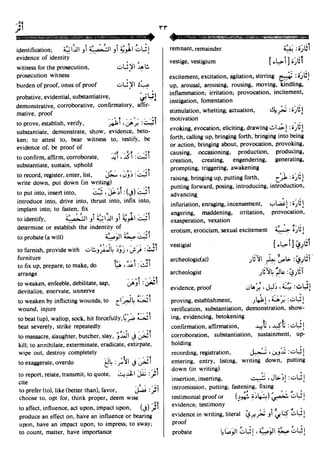 أثر
٣٣
identification; إثبات الهوية أو الشخصية أو الذاتية
evidence of identity
witness for the prosecution, شاهد الإثبات
prosecution witness
burden of proof, onus of proof عبء الإثبات
probative, evidential, substantiative, إثباتي
demonstrative, corroborative, confirmatory, affir-
mative, proof
to prove, establish, verify, أثبت: برهن، أظهر
substantiate, demonstrate, show, evidence, beto-
ken; to attest to, bear witness to, testify, be
evidence of, be proof of
to confirm, affirm, corroborate, أثبت: أيد، أكد
substantiate, sustain, uphold
to record, register, enter, list, أثبت: دون، سجل
write down, put down (in writing)
to put into, insert into, أثبت (ل): أدخل في، ثبت
introduce into, drive into, thrust into, infix into,
implant into, to fasten, fix
to identify, أثبت الهوية أو الذاتية أو الشخصية
determine or establish the identity of
to probate (a will) أثبت صحة الوصية
to furnish, provide with أثث: فرش، زود بـ
furniture
to fix up, prepare; to make, do أثث: أصلح، هيأ
arrange
to weaken, enfeeble, debilitate, sap, أثخن: أوهن
devitalize, enervate, unnerve
to weaken by inflicting wounds, to أثخنه بالجراح
wound, injure
to beat (up), wallop, sock, hit forcefully, أثخنه ضربا
beat severely, strike repeatedly
to massacre, slaughter, butcher, slay, أثخن في العدو
kill; to annihilate, exterminate, eradicate, extirpate,
wipe out, destroy completely
to exaggerate, overdo أثخن في الأمر: بالغ
to report, relate, transmit; to quote, أثر: نقل الحديث
cite
to prefer (to), like (better than), favor, أثر: فضل
choose to, opt for, think proper, deem wise
to affect, influence, act upon, impact upon, أثر (في)
produce an effect on, have an influence or bearing
upon, have an impact upon; to impress; to sway;
to count, matter, have importance
remnant, remainder أثارة: بقية
vestige, vestigium أثارة [أحياء]
excitement, excitation, agitation, stirring إثارة: تهييج
up, arousal, arousing, rousing, moving, kindling,
inflammation; irritation; provocation, incitement,
instigation, fomentation
stimulation, whetting; actuation, إثارة: تحريك
motivation
evoking, evocation, eliciting, drawing إثارة: إحداث
forth, calling up, bringing forth, bringing into being
or action, bringing about, provocation, provoking,
causing, occasioning, production, producing,
creation, creating, engendering, generating,
prompting, triggering, awakening
raising, bringing up, putting forth, إثارة: طرح
putting forward, posing, introducing, introduction,
advancing
infuriation, enraging, incensement, إثارة: إغضاب
angering, maddening, irritation, provocation,
exasperation, vexation
erotism, eroticism, sexual excitement إثارة جنسية
vestigial أثاري [أحياء]
archeologic(al) أثاري: متعلق بعلم الآثار
archeologist أثاري: عالم بالآثار
evidence, proof إثبات: بينة، دليل، برهان
proving, establishment, إثبات: برهنة، إظهار
verification, substantiation, demonstration, show-
ing, evidencing, betokening
confirmation, affirmation, إثبات: تأكيد، تأييد
corroboration, substantiation, sustainment, up-
holding
recording, registration, إثبات: تدوين، تسجيل
entering, entry, listing, writing down, putting
down (in writing)
insertion, inserting, إثبات: إدخال، تثبيت
intromission, putting; fastening, fixing
testimonial proof or إثبات شخصي (بشهادة شهود)
evidence; testimony
evidence in writing, literal إثبات كتابي أو تحريري
proof
probate إثبات صحة الوصية، إثبات الوصايا